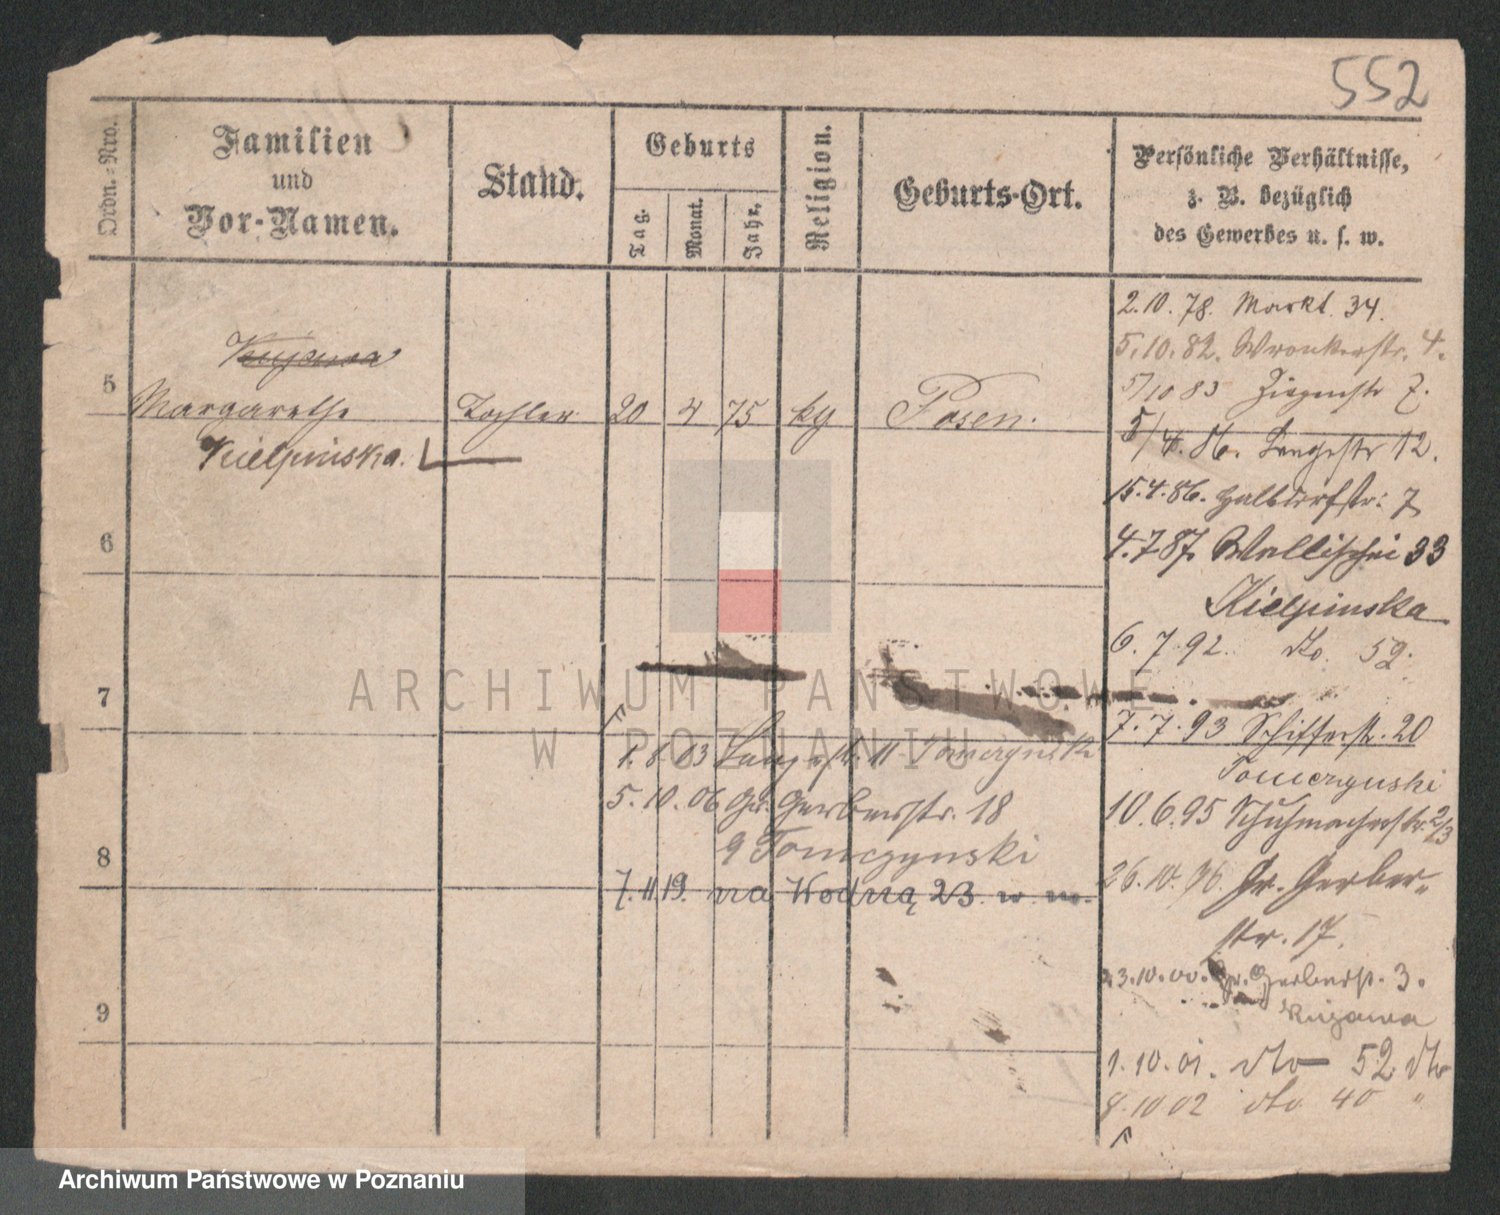 552
Ordn.-Nro.
Familien
und
Vor-Namen.
Stand.
Geburts
Tag.
Monat.
Jahr.
Religion.
Geburts-Ort.
Persönliche Verhältnisse,
z. B. bezüglich
des Gewerbes u. s. w.
2.10.78. Markt. 34.
Kujawa
5.10.82. Wronkerstr. 4.
5
5/10 83 Ziegenstr 7.
Margarethe Tochter 20 4 75 kg Posen.
5/4.86. Langestr 12.
Kielpinska.
15.4.86. Halbdorfstr: 7
6
4.7.87. Wallischei 33
Kielpinska
6.7.92. do. 52.
ARCHIWUM PAŃSTWOWE
W POZNANIU
7
7.7.93 Schifferstr. 20
Tomczynski
1.8.03 Langestr. 11 Tomczynski
5.10.06 Gr. Gerberstr. 18
10.6.95 Schuhmacherstr. 2/3
8
9 Tomczynski
7.11.19. na Wodną 23. w. m.
26.10.96. Gr. Gerber-
str. 17.
23.10.00. Gr. Gerberstr. 3.
9
Kujawa
1.10.01. dto 52 dto
8.10 02 dto 40 "
Archiwum Państwowe w Poznaniu